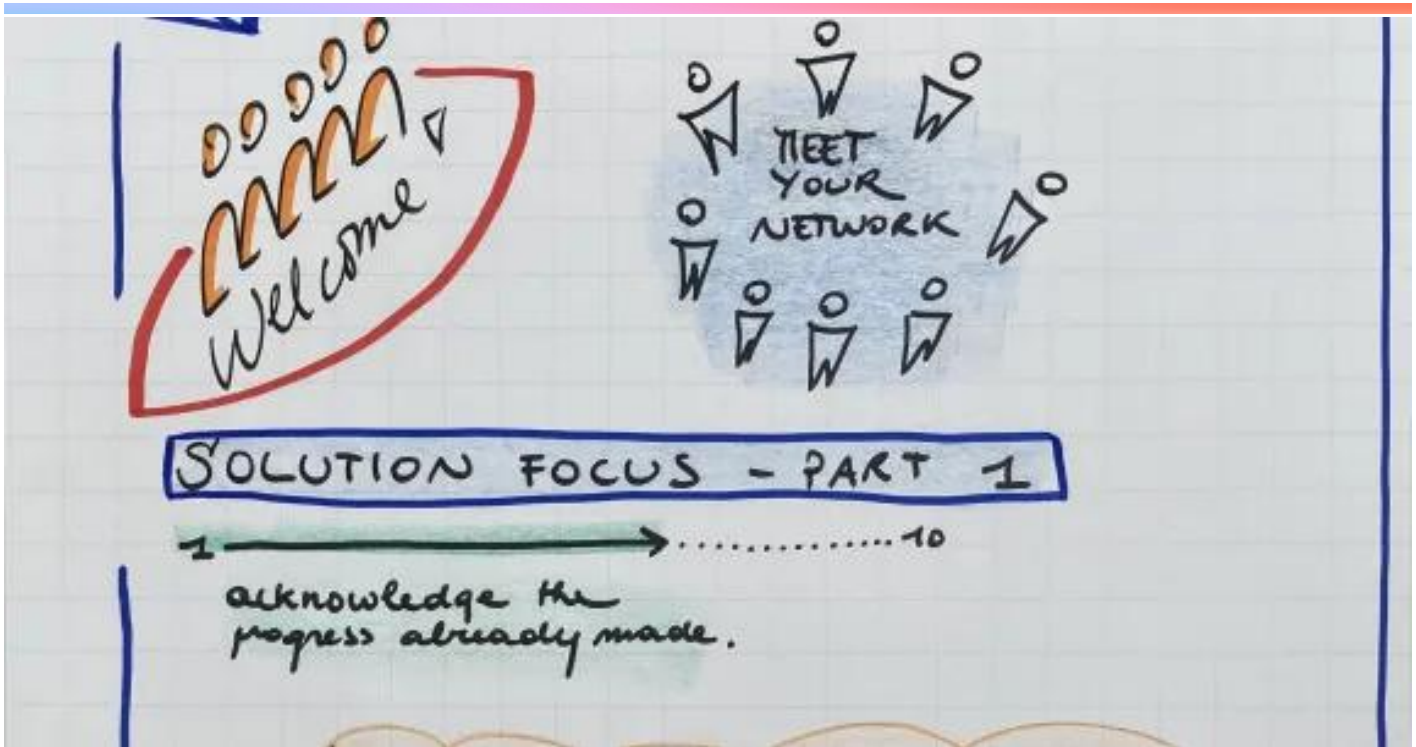 Welcome
MEET
YOUR
NETWORK
SOLUTION FOCUS - PART 1
1 ............ 10
acknowledge the
progress already made.